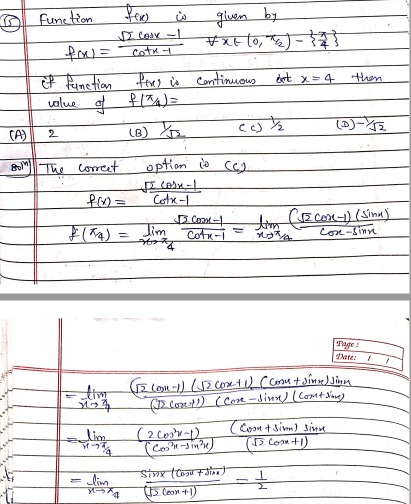 (15) Function f(x) is given by
f(x) = (√2 cosx - 1)/(cotx - 1) ∀ x ∈ (0, π/2) - {π/4}
if function f(x) is continuous at x = 4 then
value of f(π/4) =
(A) 2 (B) 1/√2 (C) 1/2 (D) -1/√2
Solⁿ) The correct option is (C)
f(x) = (√2 cosx - 1)/(cotx - 1)
f(π/4) = lim x→π/4 (√2 cosx - 1)/(cotx - 1) = lim x→π/4 (√2 cosx - 1)(sinx)/(cosx - sinx)
Page :
Date: / /
= lim x→π/4 (√2 cosx - 1)(√2 cosx + 1)(cosx + sinx) sinx/(√2 cosx + 1)(cosx - sinx)(cosx + sinx)
= lim x→π/4 (2cos²x - 1)/(cos²x - sin²x) (cosx + sinx) sinx/(√2 cosx + 1)
= lim x→π/4 sinx (cosx + sinx)/(√2 cosx + 1) = 1/2